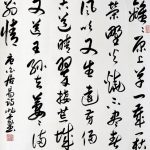 離〻原上草一歲一枯
榮野火燒不盡春
風吹又生遠芳侵
道晴翠接荒城
又送王孫去萋
別情
唐白居易詩